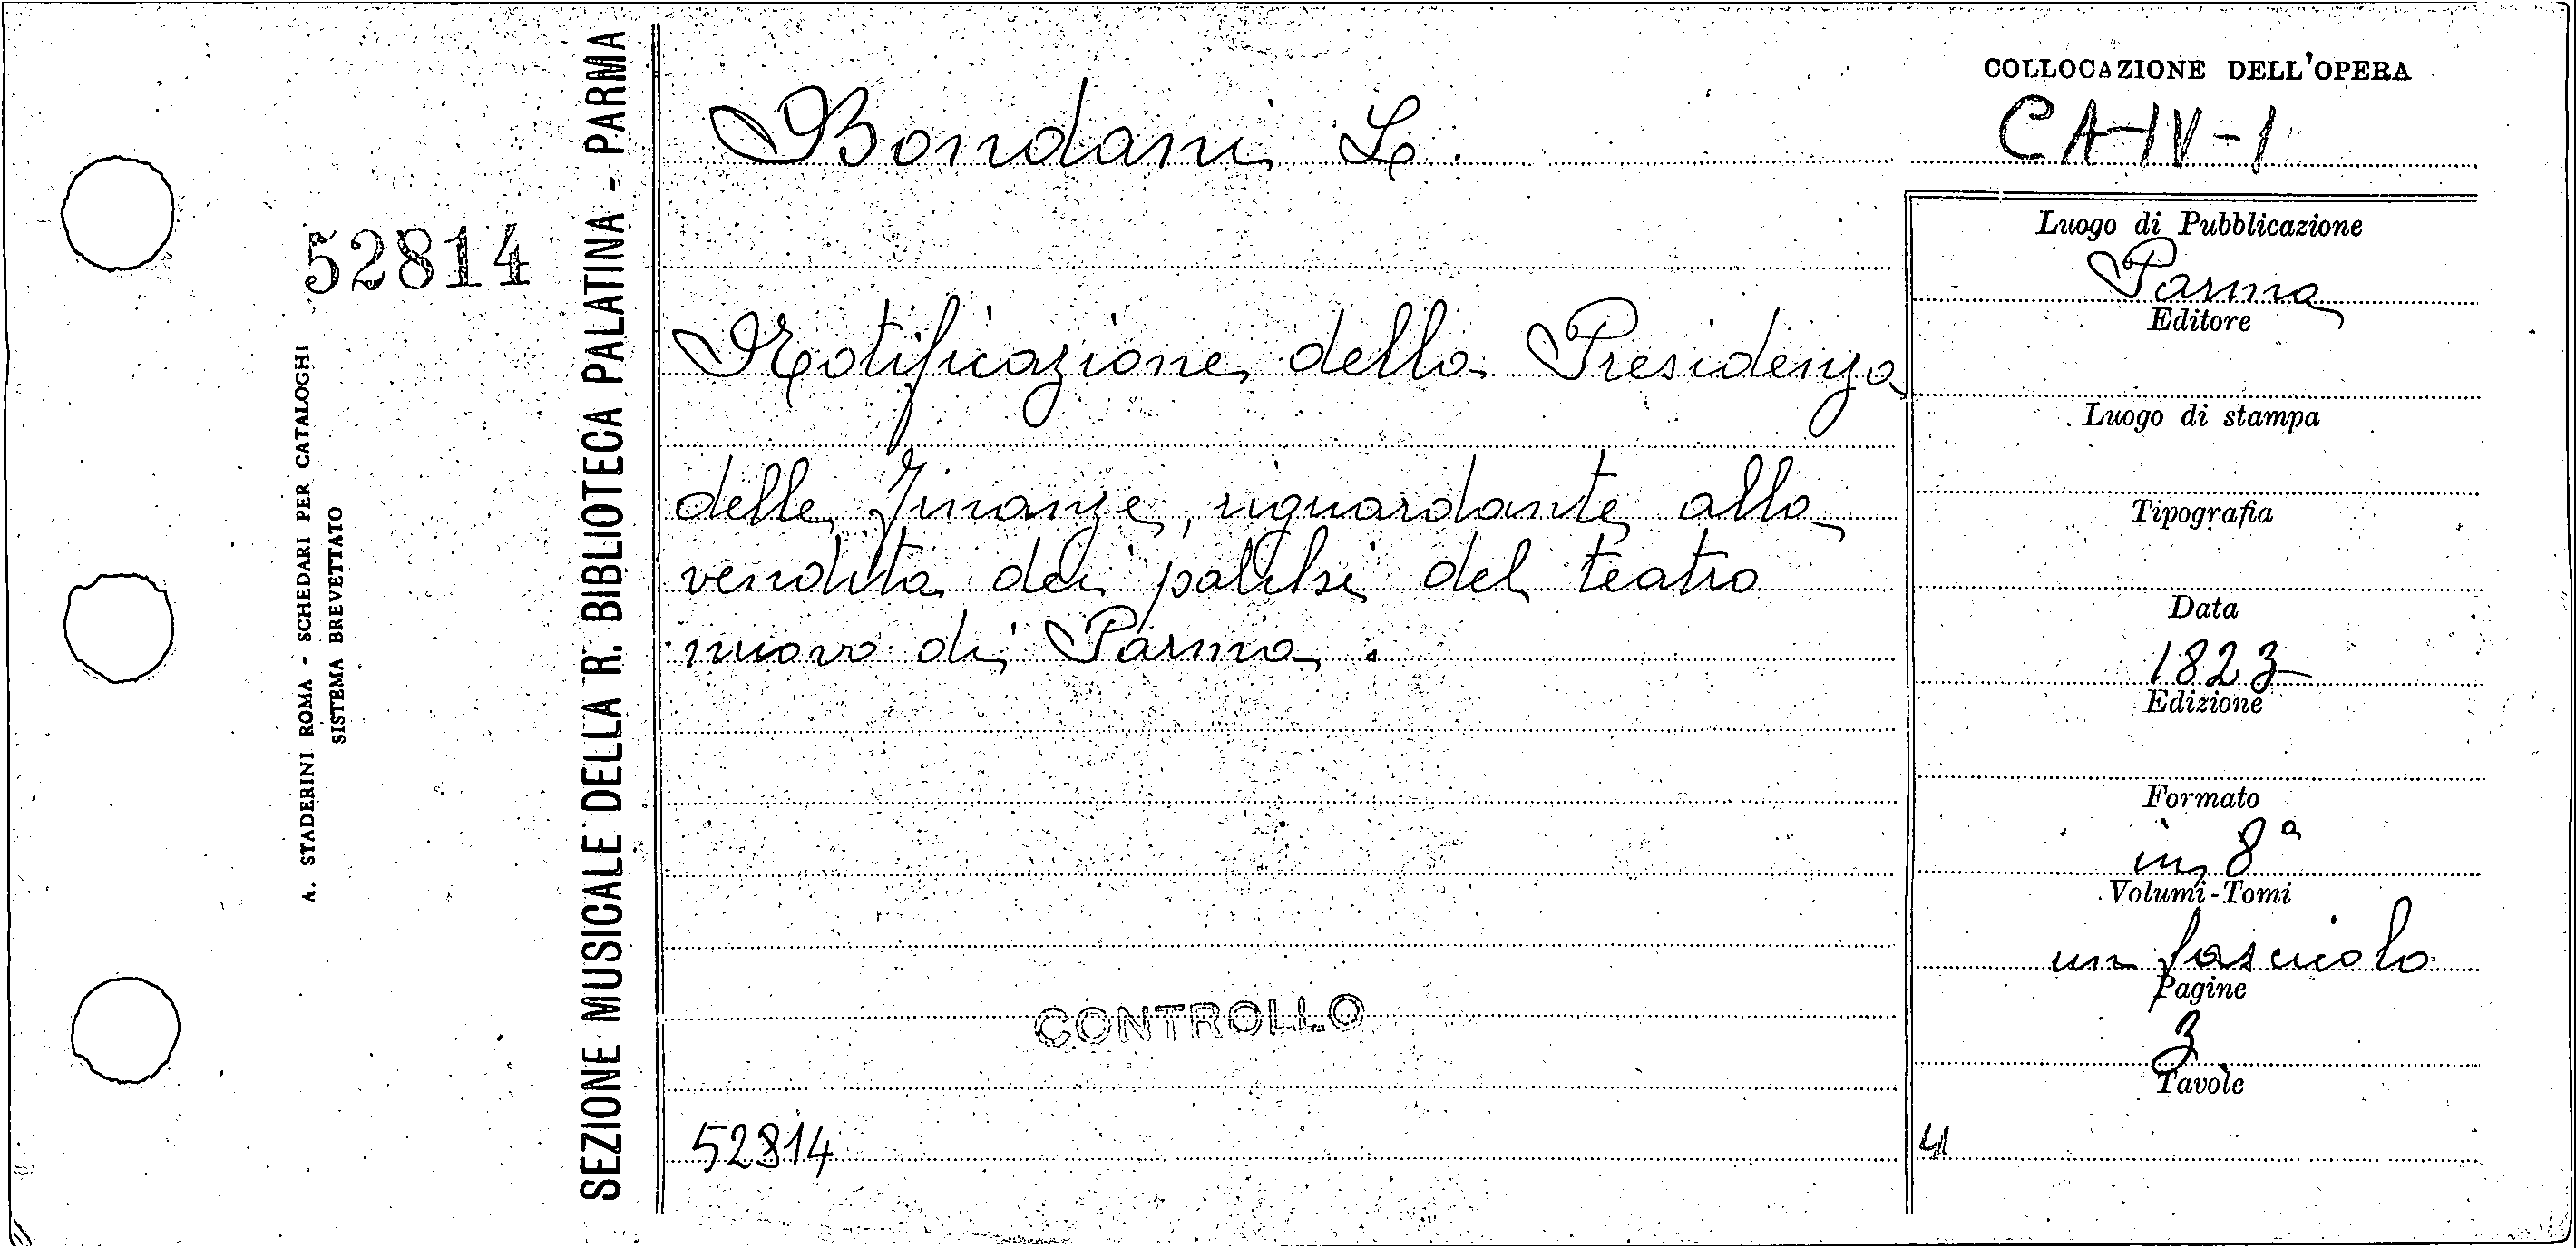 52814
A. STADERINI ROMA - SCHEDARI PER CATALOGHI
SISTEMA BREVETTATO
SEZIONE MUSICALE DELLA R. BIBLIOTECA PALATINA - PARMA
Bondani L.
Notificazione della Presidenza
delle Finanze, riguardante alla
vendita dei palchi del teatro
nuovo di Parma.
CONTROLLO
52814
COLLOCAZIONE DELL'OPERA
CA-IV-1
Luogo di Pubblicazione
Parma
Editore
Luogo di stampa
Tipografia
Data
1823
Edizione
Formato
in 8ª
Volumi-Tomi
un fascicolo
Pagine
3
Tavole